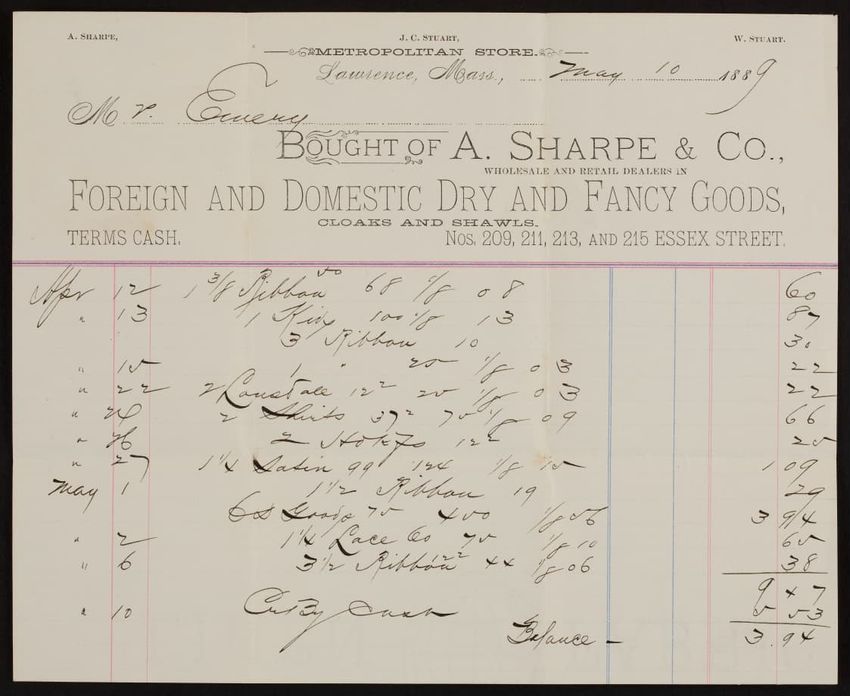 A. SHARPE, J. C. STUART, W. STUART.
METROPOLITAN STORE.
Lawrence, Mass., May 10 1889
Mr. Emery
BOUGHT OF A. SHARPE & CO.,
WHOLESALE AND RETAIL DEALERS IN
FOREIGN AND DOMESTIC DRY AND FANCY GOODS,
CLOAKS AND SHAWLS.
TERMS CASH. NOS. 209, 211, 213, AND 215 ESSEX STREET.
Apr 12 1 3/8 Ribbon 50 68 1/8 08 60
" 13 1 100 1/8 13 87
3 Ribbon 10 30
" 15 1 " 25 1/8 03 22
" 22 2 12 2 25 1/8 03 22
" 2 Shirts 37 2 75 1/8 09 66
" 26 2 Hdkfs 12 2 25
" 27 1 1/4 Satin 99 124 1/8 15 1 09
May 1 1 1/2 Ribbon 19 29
6 Goods 75 450 1/8 56 3 94
" 2 1 1/4 Lace 60 75 1/8 10 65
" 6 3 1/2 Ribbon 12 2 44 1/8 06 38
9 47
" 10 Cr By Cash 5 53
Balance - 3.94